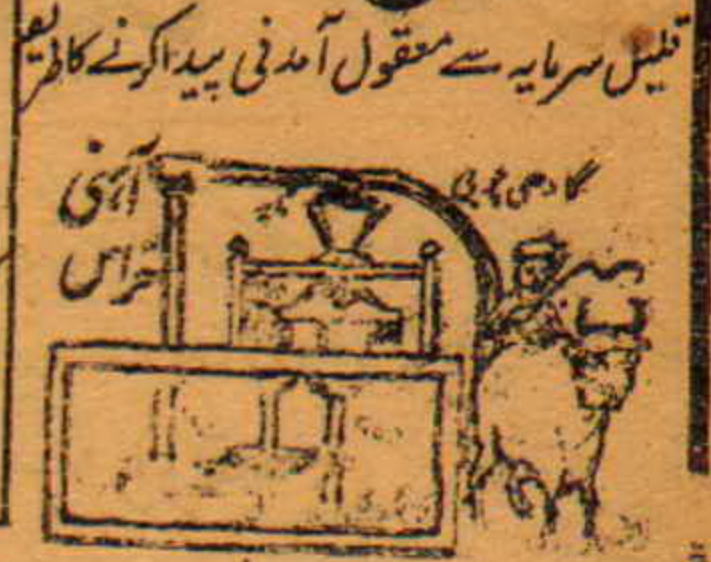 قلیل سرمایہ سے معقول آمدنی پیدا کرنے کا طریقہ
آہنی
خراس
گادھی چوبی